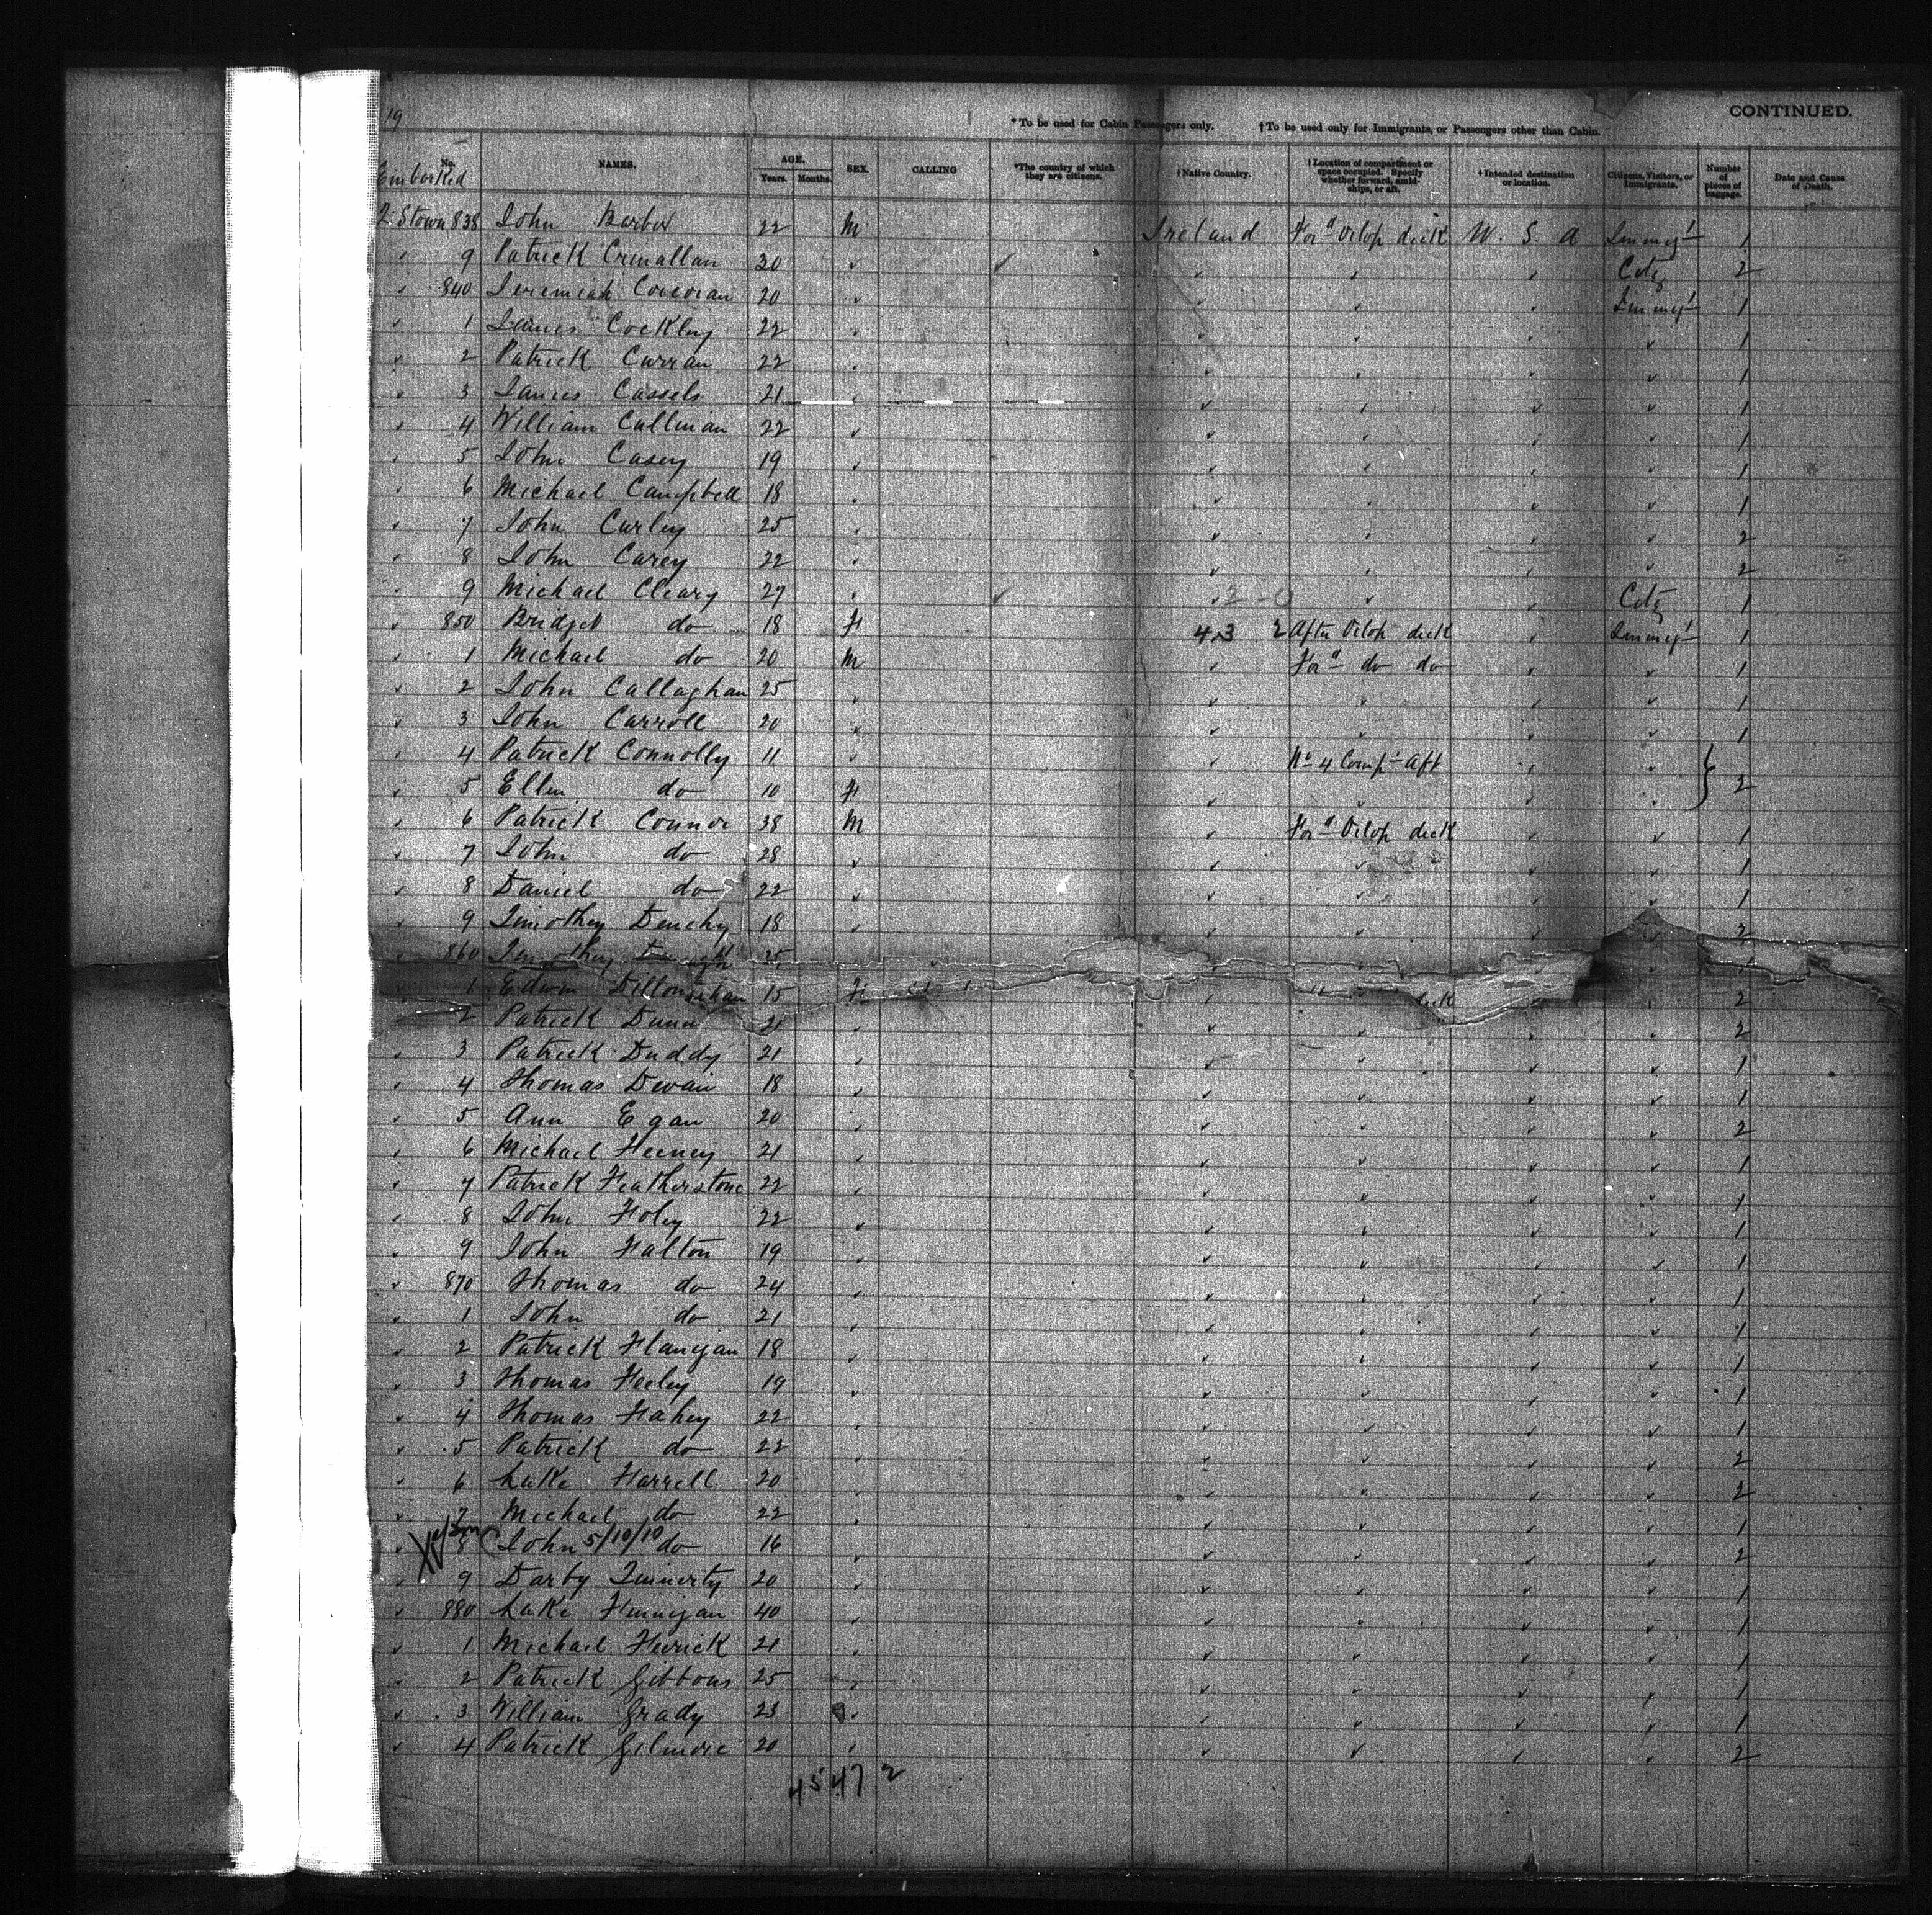 19
CONTINUED.
*To be used for Cabin Passengers only. †To be used only for Immigrants, or Passengers other than Cabin.
No. NAMES. AGE. Years. Months. SEX. CALLING *The country of which they are citizens. †Native Country. †Location of compartment or space occupied. Specify whether forward, amidships, or aft. †Intended destination or location. Citizens, Visitors, or Immigrants. Number of pieces of baggage. Date and Cause of Death.
Embarked
Q. Stown 838 John Barber 22 M Ireland For'd Orlop deck U. S. A Immigt 1
9 Patrick 30 Citz 2
840 Jeremiah Corcoran 20 Immigt 1
1 James Cockley 22 1
2 Patrick Curran 22 1
3 James Cassels 21 1
4 William Cullinan 22 1
5 John Casey 19 1
6 Michael Campbell 18 1
7 John Curley 25 2
8 John Carey 22 2
9 Michael Cleary 27 2-0 Citz 1
850 Bridget do 18 F 2 After Orlop deck Immigt 1
1 Michael do 20 M For'd do do 1
2 John Callaghan 25 1
3 John Carroll 20 1
4 Patrick Connolly 11 No 4 Compt Aft
5 Ellen do 10 F 2
6 Patrick Connor 38 M For'd Orlop deck 1
7 John do 28 1
8 Daniel do 22 1
9 Timothy Denehy 18 2
860 Timothy 25
1 Edwin 15 F deck 2
2 Patrick Dunn 21 2
3 Patrick Duddy 21 1
4 Thomas Devan 18 1
5 Ann Egan 20 2
6 Michael Feeney 21 1
7 Patrick Featherstone 22 1
8 John Foley 22 1
9 John Falton 19 1
870 Thomas do 24 1
1 John do 21 1
2 Patrick Flanigan 18 1
3 Thomas Feeley 19 1
4 Thomas Fahey 22 1
5 Patrick do 22 2
6 Luke Farrell 20 2
7 Michael do 22 1
8 John 5/10/10 do 16 2
9 Darby Finnerty 20 1
880 Luke Finnigan 40 1
1 Michael Ferrick 21 1
2 Patrick Gibbons 25 1
3 William Grady 23 1
4 Patrick Gilmore 20 2
45 47 2